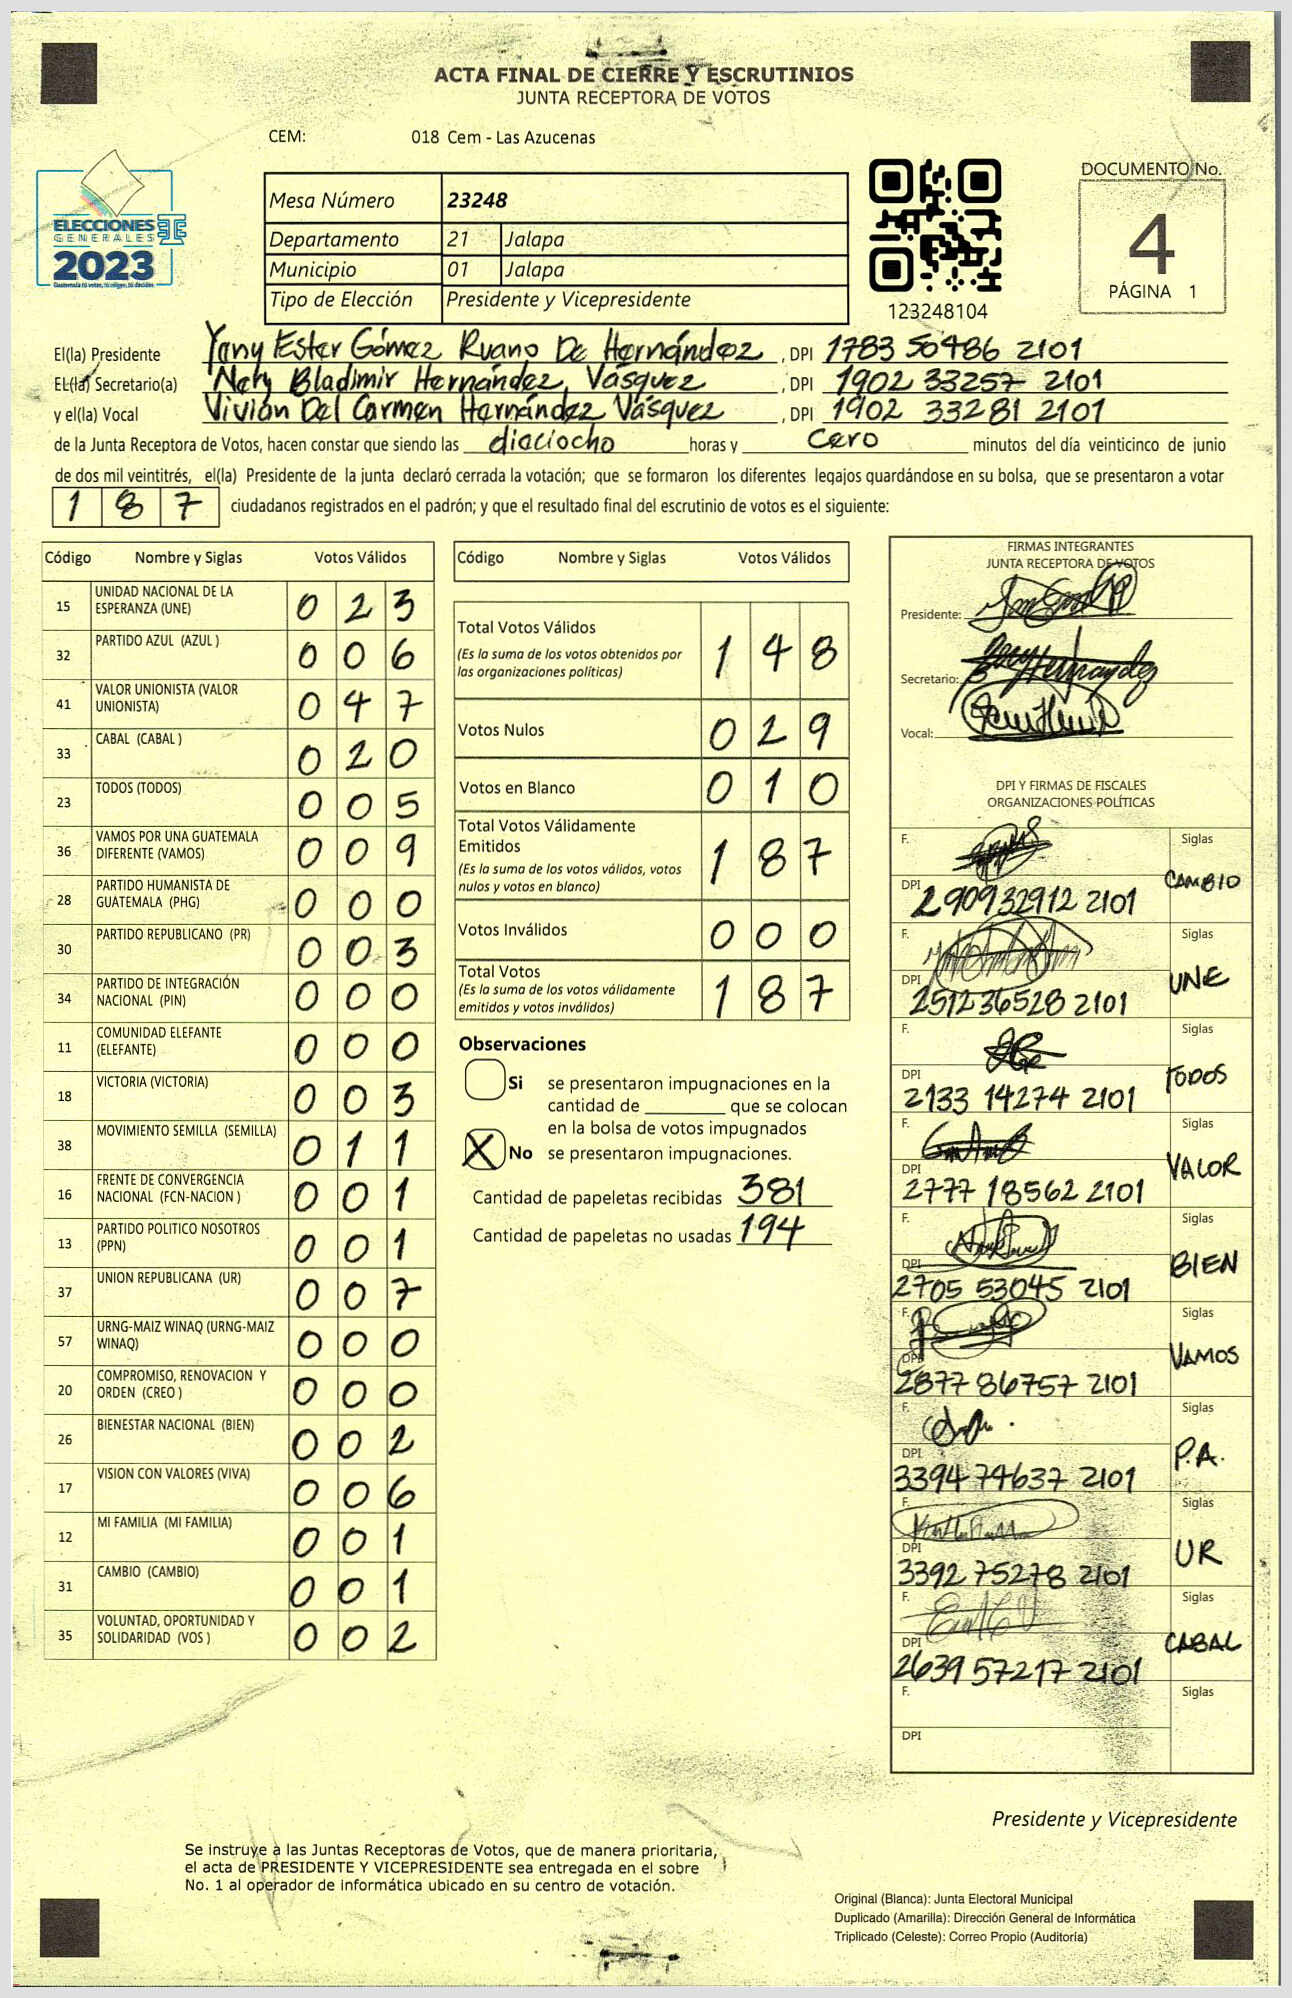 ACTA FINAL DE CIERRE Y ESCRUTINIOS
JUNTA RECEPTORA DE VOTOS
CEM: 018 Cem - Las Azucenas
ELECCIONES
GENERALES
2023
Guatemala tú votas, tú eliges, tú decides
Mesa Número 23248
Departamento 21 Jalapa
Municipio 01 Jalapa
Tipo de Elección Presidente y Vicepresidente
123248104
DOCUMENTO No.
4
PÁGINA 1
El(la) Presidente Yany Ester Gómez Ruano De Hernández , DPI 1783 50486 2101
EL(la) Secretario(a) Nery Bladimir Hernández Vásquez , DPI 1902 33257 2101
y el(la) Vocal Vivian Del Carmen Hernández Vásquez , DPI 1902 33281 2101
de la Junta Receptora de Votos, hacen constar que siendo las dieciocho horas y cero minutos del día veinticinco de junio
de dos mil veintitrés, el(la) Presidente de la junta declaró cerrada la votación; que se formaron los diferentes legajos guardándose en su bolsa, que se presentaron a votar
1 8 7 ciudadanos registrados en el padrón; y que el resultado final del escrutinio de votos es el siguiente:
Código Nombre y Siglas Votos Válidos
15 UNIDAD NACIONAL DE LA ESPERANZA (UNE) 0 2 3
32 PARTIDO AZUL (AZUL ) 0 0 6
41 VALOR UNIONISTA (VALOR UNIONISTA) 0 4 7
33 CABAL (CABAL ) 0 2 0
23 TODOS (TODOS) 0 0 5
36 VAMOS POR UNA GUATEMALA DIFERENTE (VAMOS) 0 0 9
28 PARTIDO HUMANISTA DE GUATEMALA (PHG) 0 0 0
30 PARTIDO REPUBLICANO (PR) 0 0 3
34 PARTIDO DE INTEGRACIÓN NACIONAL (PIN) 0 0 0
11 COMUNIDAD ELEFANTE (ELEFANTE) 0 0 0
18 VICTORIA (VICTORIA) 0 0 3
38 MOVIMIENTO SEMILLA (SEMILLA) 0 1 1
16 FRENTE DE CONVERGENCIA NACIONAL (FCN-NACION ) 0 0 1
13 PARTIDO POLITICO NOSOTROS (PPN) 0 0 1
37 UNION REPUBLICANA (UR) 0 0 7
57 URNG-MAIZ WINAQ (URNG-MAIZ WINAQ) 0 0 0
20 COMPROMISO, RENOVACION Y ORDEN (CREO ) 0 0 0
26 BIENESTAR NACIONAL (BIEN) 0 0 2
17 VISION CON VALORES (VIVA) 0 0 6
12 MI FAMILIA (MI FAMILIA) 0 0 1
31 CAMBIO (CAMBIO) 0 0 1
35 VOLUNTAD, OPORTUNIDAD Y SOLIDARIDAD (VOS ) 0 0 2
Código Nombre y Siglas Votos Válidos
Total Votos Válidos 1 4 8
(Es la suma de los votos obtenidos por
las organizaciones políticas)
Votos Nulos 0 2 9
Votos en Blanco 0 1 0
Total Votos Válidamente
Emitidos 1 8 7
(Es la suma de los votos válidos, votos
nulos y votos en blanco)
Votos Inválidos 0 0 0
Total Votos 1 8 7
(Es la suma de los votos válidamente
emitidos y votos inválidos)
Observaciones
Si se presentaron impugnaciones en la
cantidad de ________ que se colocan
en la bolsa de votos impugnados
X No se presentaron impugnaciones.
Cantidad de papeletas recibidas 381
Cantidad de papeletas no usadas 194
FIRMAS INTEGRANTES
JUNTA RECEPTORA DE VOTOS
Presidente:
Secretario:
Vocal:
DPI Y FIRMAS DE FISCALES
ORGANIZACIONES POLÍTICAS
F. Siglas
DPI 2909 32912 2101 CAMBIO
F. Siglas
DPI 2512 36528 2101 UNE
F. Siglas
DPI 2133 14274 2101 TODOS
F. Siglas
DPI 2777 18562 2101 VALOR
F. Siglas
DPI 2705 53045 2101 BIEN
F. Siglas
DPI 2877 86757 2101 VAMOS
F. Siglas
DPI 3394 74637 2101 P.A.
F. Siglas
DPI 3392 75278 2101 UR
F. Siglas
DPI 2639 57217 2101 CABAL
F. Siglas
DPI
Presidente y Vicepresidente
Se instruye a las Juntas Receptoras de Votos, que de manera prioritaria,
el acta de PRESIDENTE Y VICEPRESIDENTE sea entregada en el sobre
No. 1 al operador de informática ubicado en su centro de votación.
Original (Blanca): Junta Electoral Municipal
Duplicado (Amarilla): Dirección General de Informática
Triplicado (Celeste): Correo Propio (Auditoría)